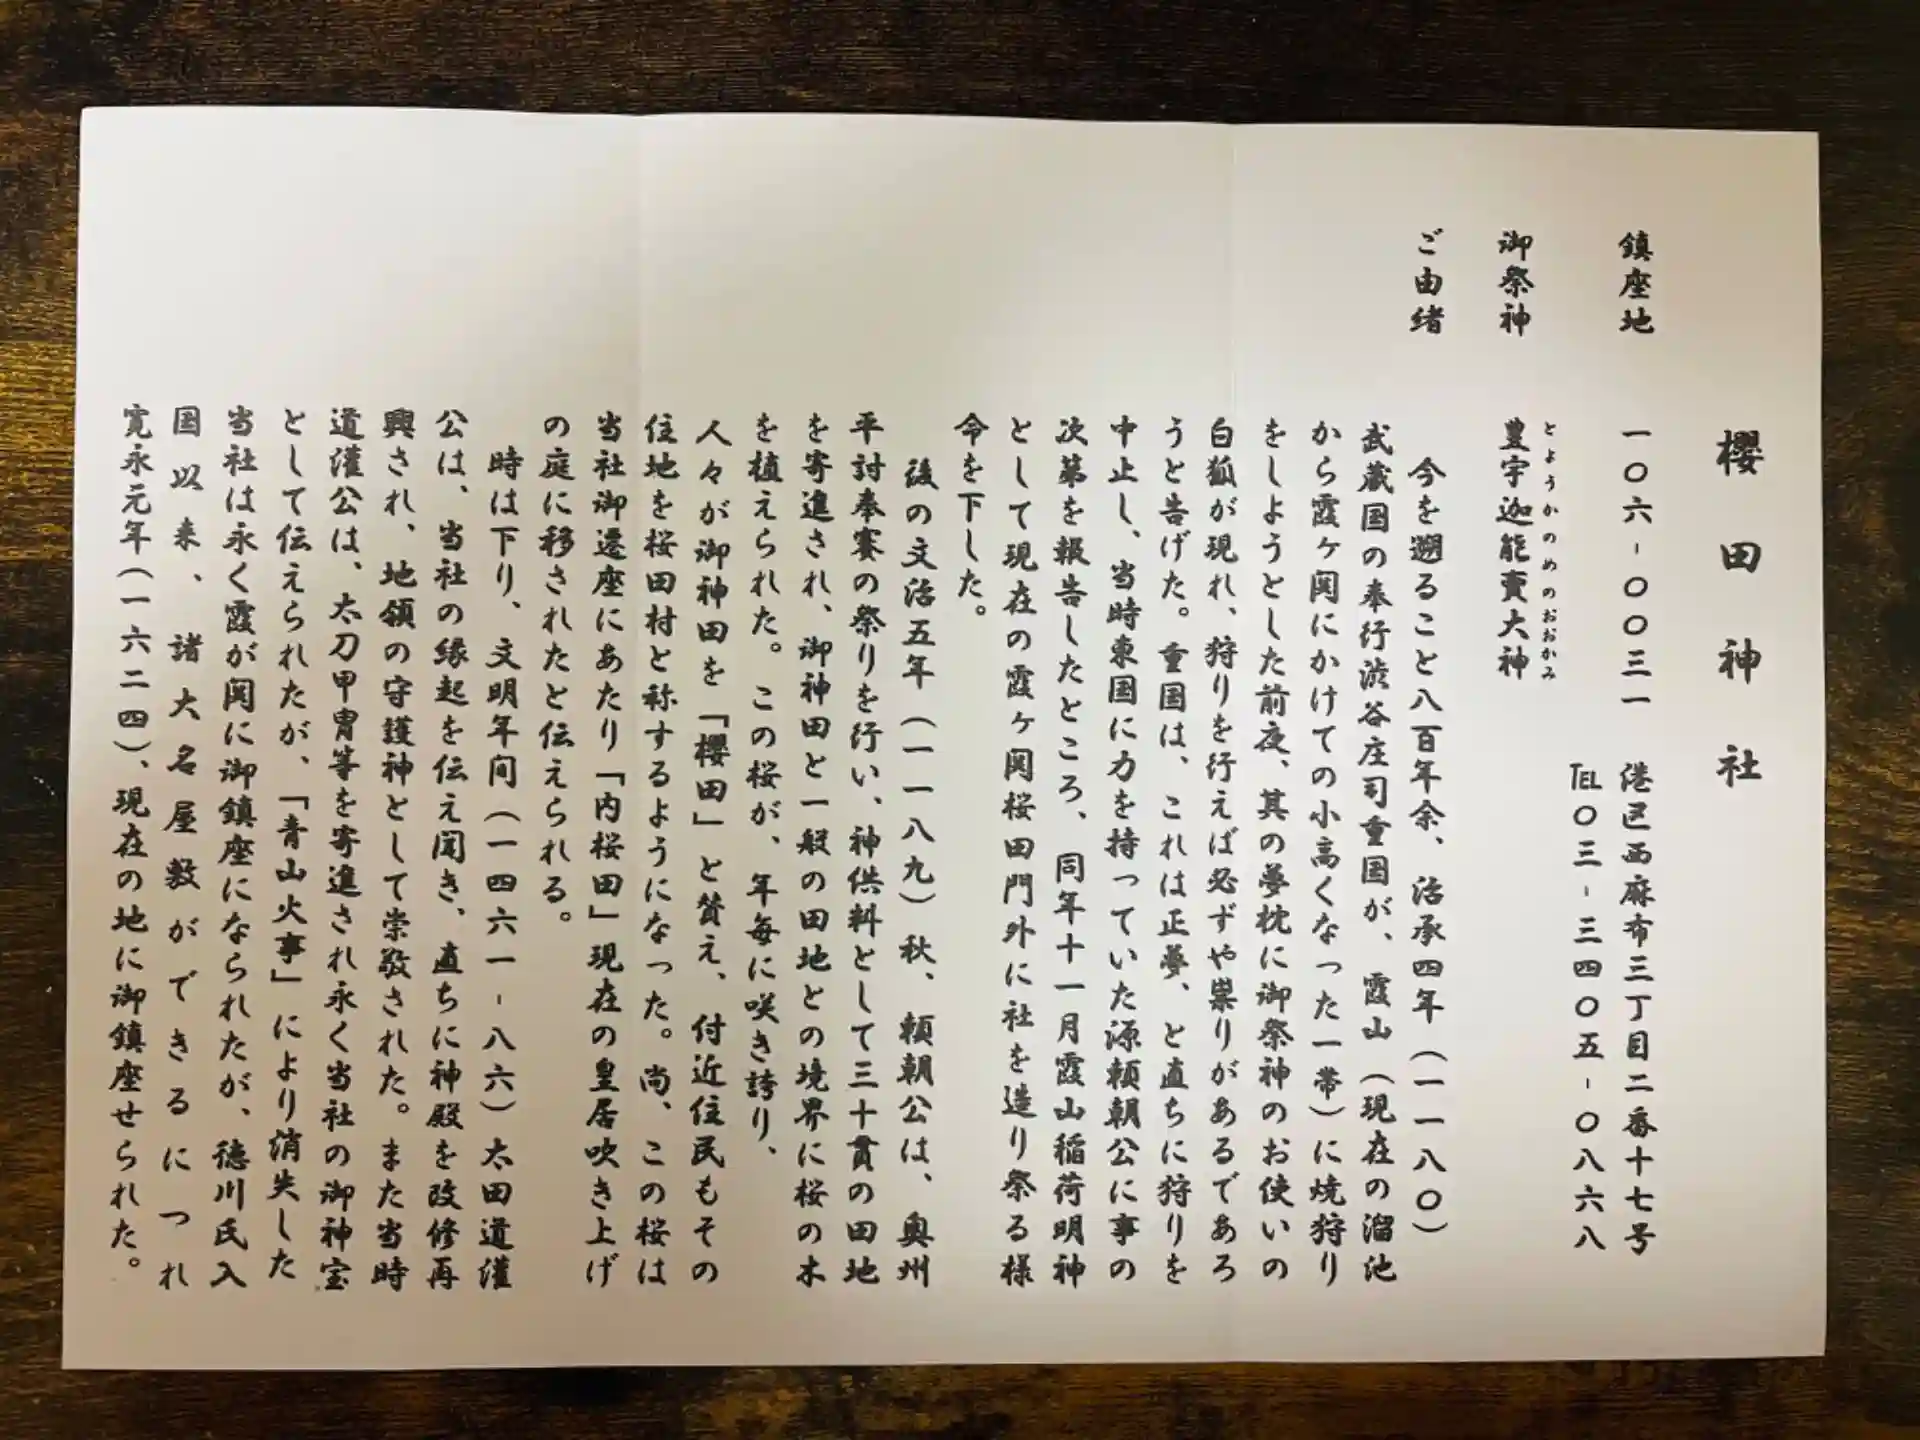 櫻田神社
鎮座地　一〇六-〇〇三一　港区西麻布三丁目二番十七号
℡〇三-三四〇五-〇八六八
とようかのめのおおかみ
御祭神　豊宇迦能賣大神
ご由緒
今を遡ること八百年余、治承四年（一一八〇）
武蔵国の奉行渋谷庄司重国が、霞山（現在の溜池
から霞ヶ関にかけての小高くなった一帯）に焼狩り
をしようとした前夜、其の夢枕に御祭神のお使いの
白狐が現れ、狩りを行えば必ずや祟りがあるであろ
うと告げた。重国は、これは正夢、と直ちに狩りを
中止し、当時東国に力を持っていた源頼朝公に事の
次第を報告したところ、同年十一月霞山稲荷明神
として現在の霞ヶ関桜田門外に社を造り祭る様
令を下した。
後の文治五年（一一八九）秋、頼朝公は、奥州
平討奉賽の祭りを行い、神供料として三十貫の田地
を寄進され、御神田と一般の田地との境界に桜の木
を植えられた。この桜が、年毎に咲き誇り、
人々が御神田を「櫻田」と賛え、付近住民もその
住地を桜田村と称するようになった。尚、この桜は
当社御遷座にあたり「内桜田」現在の皇居吹き上げ
の庭に移されたと伝えられる。
時は下り、文明年间（一四六一-八六）太田道灌
公は、当社の縁起を伝え聞き、直ちに神殿を改修再
興され、地領の守護神として崇敬された。また当時
道灌公は、太刀甲冑等を寄進され永く当社の御神宝
として伝えられたが、「青山火事」により消失した
当社は永く霞が関に御鎮座になられたが、徳川氏入
国以来、諸大名屋敷ができるにつれ
寛永元年（一六二四）、現在の地に御鎮座せられた。